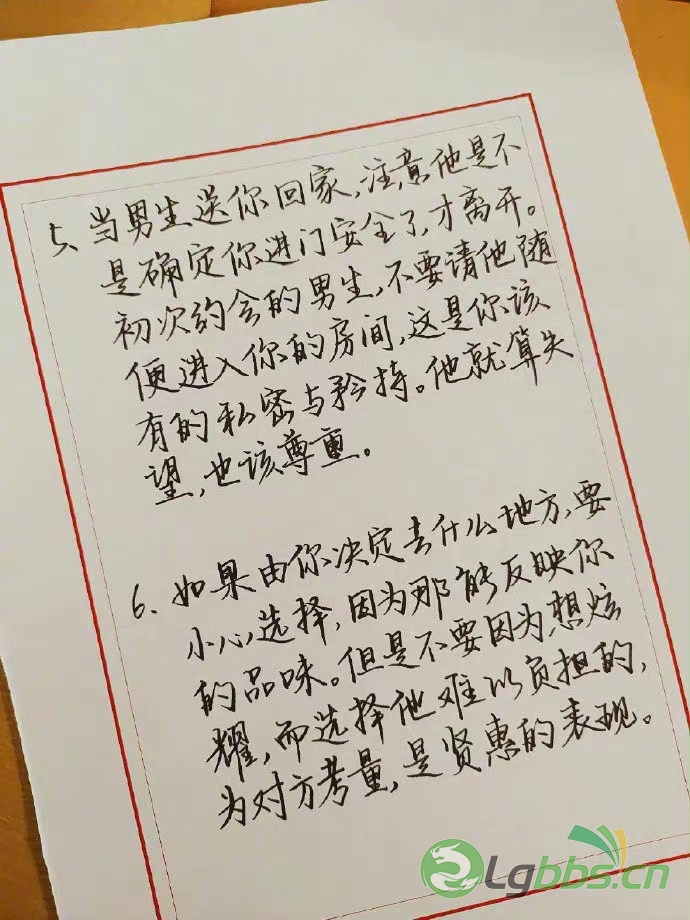 5、当男生送你回家,注意他是不
是确定你进门安全了,才离开。
初次约会的男生,不要请他随
便进入你的房间,这是你该
有的私密与矜持。他就算失
望,也该尊重。
6、如果由你决定去什么地方,要
小心选择,因为那能反映你
的品味。但是不要因为想炫
耀,而选择他难以负担的,
为对方考量,是贤惠的表现。
Lgbbs.cn